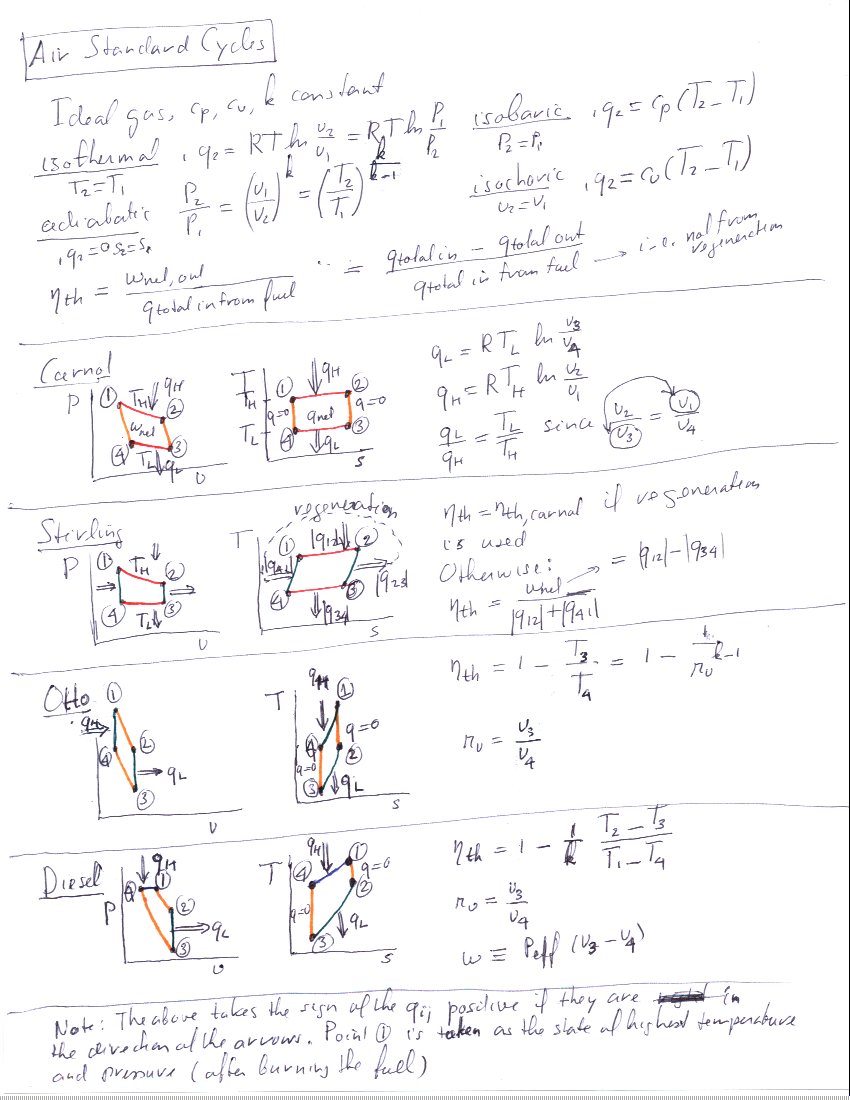 Air Standard Cycles
Ideal gas, cp, cv, k constant
isothermal ₁q₂ = RT ln v₂/v₁ = RT ln P₁/P₂
T₂ = T₁
isobaric ₁q₂ = cp (T₂ - T₁)
P₂ = P₁
adiabatic P₂/P₁ = (v₁/v₂)^k = (T₂/T₁)^(k/(k-1))
₁q₂ = 0 s₂ = s₁
isochoric ₁q₂ = cv (T₂ - T₁)
v₂ = v₁
ηth = wnet,out / qtotal in from fuel = (qtotal in - qtotal out) / qtotal in from fuel → i.e. not from regeneration
Carnot
P ① TH qH ② wnet ④ TL qL ③ v
T TH TL ① qH ② q=0 qnet q=0 ④ qL ③ s
qL = R TL ln v₃/v₄
qH = R TH ln v₂/v₁
qL/qH = TL/TH since v₂/v₃ = v₁/v₄
Stirling
P ① TH ② ④ TL ③ v
regeneration
T ① |q12| ② |q41| |q23| ④ |q34| ③ s
ηth = ηth,carnot if regeneration
is used
Otherwise:
ηth = wnet / (|q12| + |q41|) → = |q12| - |q34|
Otto
① qH ④ ② qL ③ v
T qH ① q=0 ④ ② q=0 ③ qL s
ηth = 1 - T₃/T₄ = 1 - 1/rv^(k-1)
rv = v₃/v₄
Diesel
P qH ④ ① ② qL ③ v
T qH ① q=0 ④ ② q=0 qL ③ s
ηth = 1 - 1/k (T₂ - T₃)/(T₁ - T₄)
rv = v₃/v₄
w ≡ Peff (v₃ - v₄)
Note: The above takes the sign of the qij positive if they are in
the direction of the arrows. Point ① is taken as the state of highest temperature
and pressure (after burning the fuel)